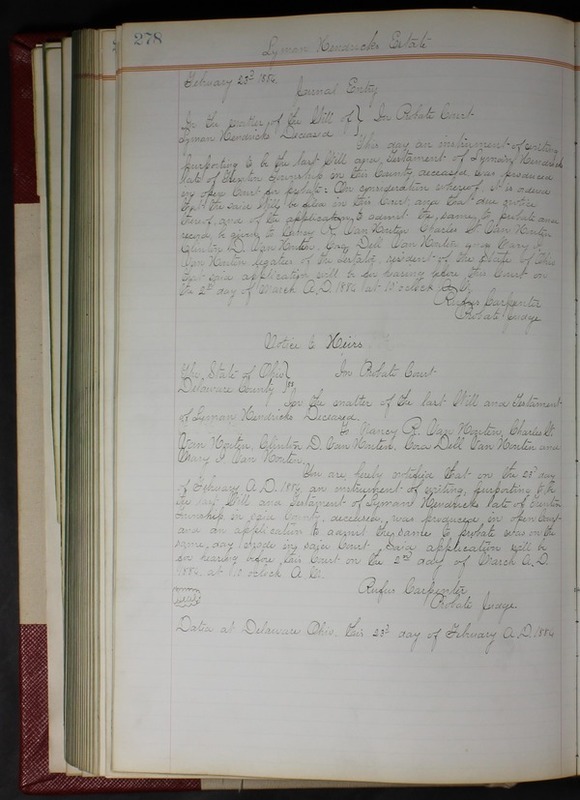 278
Lyman Hendricks Estate
February 23d 1884.
Journal Entry
In the matter of the Will of } In Probate Court
Lyman Hendricks Deceased }
This day an instrument of writing
purporting to be the last Will and Testament of Lyman Hendricks
late of Township in this County deceased was produced
in open Court for probate: On consideration whereof it is ordered
that the said Will be filed in this Court and that due notice
thereof and of the application to admit the same to probate and
record be given to Nancy R. Van Houten Charles St. Van Houten
Clinton D. Van Houten Cora Dell Van Houten and Mary I.
Van Houten legatees of the testator, resident of the State of Ohio
that said application will be for hearing before this Court on
the 2d day of March A.D. 1884 at 10 o'clock A.M.
Rufus Carpenter
Probate Judge
Notice to Heirs
The State of Ohio } In Probate Court
Delaware County } ss
In the matter of the last Will and Testament
of Lyman Hendricks Deceased.
To Nancy R. Van Houten, Charles St.
Van Houten, Clinton D. Van Houten, Cora Dell Van Houten and
Mary I. Van Houten.
You are hereby notified that on the 23d day
of February A.D. 1884 an instrument of writing, purporting to be
the last Will and Testament of Lyman Hendricks late of
Township in said County, deceased, was produced in open Court
and an application to admit the same to probate was on the
same day made in said Court. Said application will be
for hearing before this Court on the 2nd day of March A.D.
1884. at 10 o'clock A.M.
Rufus Carpenter
Probate Judge.
Seal
Dated at Delaware Ohio. this 23d day of February A.D. 1884